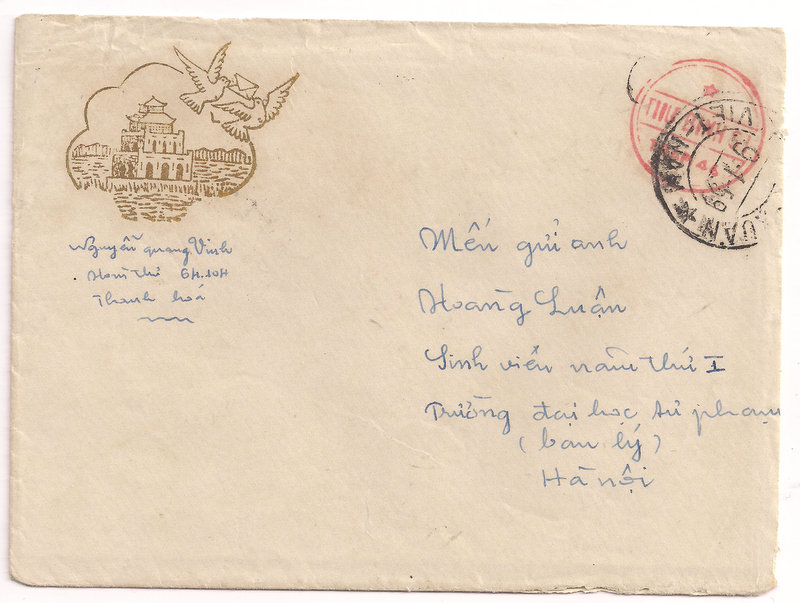 Nguyễn quang Vinh
Hòm thư 6H.10H
Thanh hoá
Mến gửi anh
Hoàng Luận
Sinh viên năm thứ I
Trường đại học sư phạm
(ban lý)
Hà nội
VIET NAM